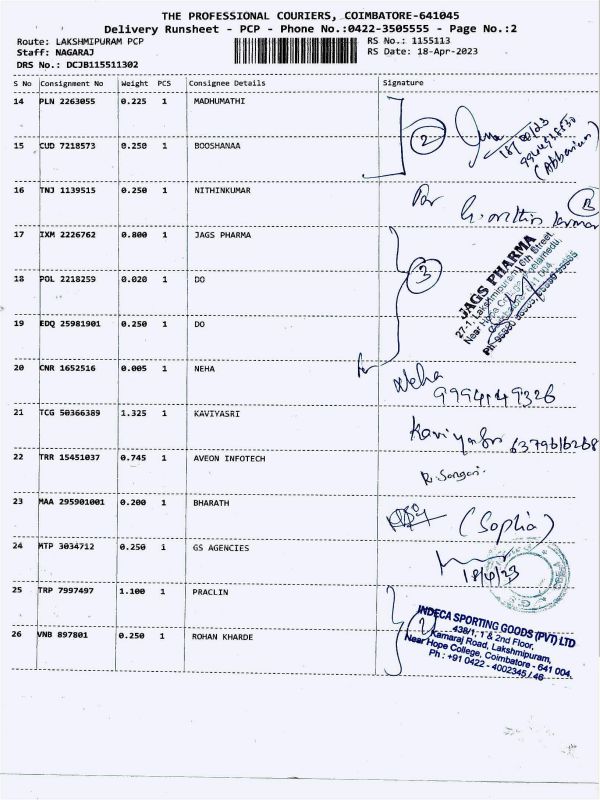 THE PROFESSIONAL COURIERS, COIMBATORE-641045
Delivery Runsheet - PCP - Phone No.:0422-3505555 - Page No.:2
Route: LAKSHMIPURAM PCP
Staff: NAGARAJ
DRS No.: DCJB115511302
RS No.: 1155113
RS Date: 18-Apr-2023
S No Consignment No Weight PCS Consignee Details Signature
14 PLN 2263055 0.225 1 MADHUMATHI
2
15 CUD 7218573 0.250 1 BOOSHANAA
16 TNJ 1139515 0.250 1 NITHINKUMAR
For
17 IXM 2226762 0.800 1 JAGS PHARMA
18 POL 2218259 0.020 1 DO
3
19 EDQ 25981901 0.250 1 DO
JAGS PHARMA
27-1, Lakshmipuram, 6th Street,
20 CNR 1652516 0.005 1 NEHA
Neha
21 TCG 50366389 1.325 1 KAVIYASRI
22 TRR 15451037 0.745 1 AVEON INFOTECH
23 MAA 295901001 0.200 1 BHARATH
(Sophia)
24 MTP 3034712 0.250 1 GS AGENCIES
18/4/23
25 TRP 7997497 1.100 1 PRACLIN
26 VNB 897801 0.250 1 ROHAN KHARDE
INDECA SPORTING GOODS (PVT) LTD
438/1, 1 & 2nd Floor,
Kamaraj Road, Lakshmipuram,
Near Hope College, Coimbatore - 641 004.
Ph : +91 0422 - 4002345 / 46